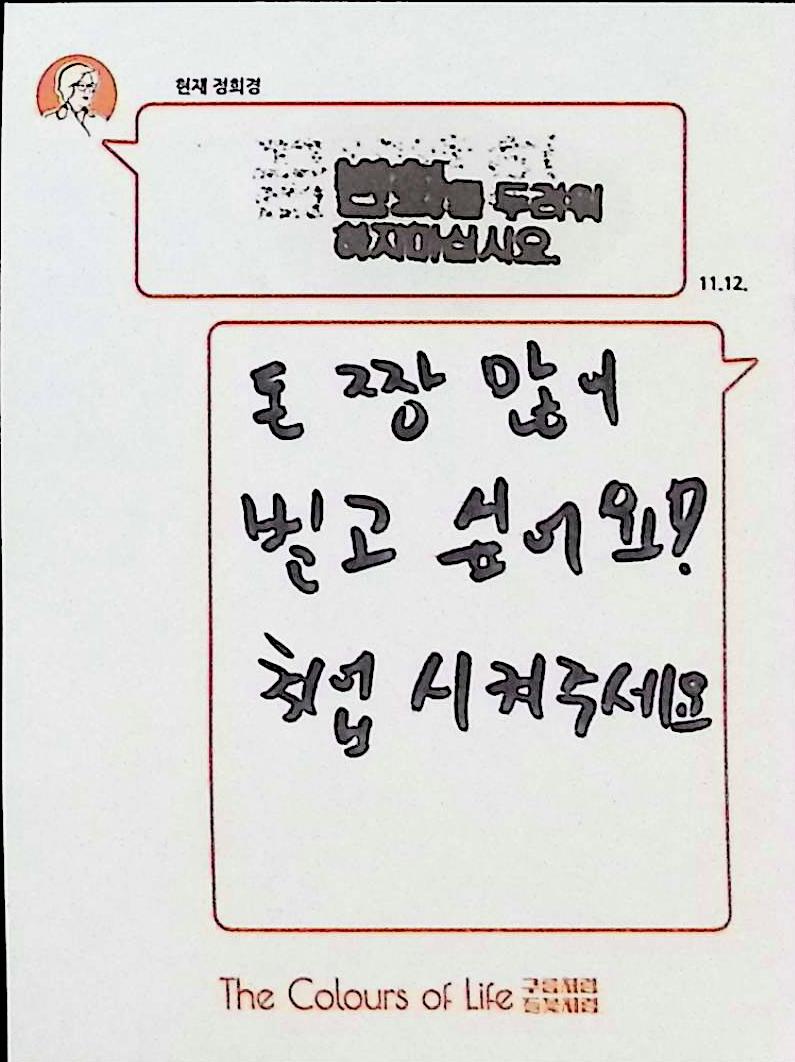 현재 정희경
두려워
하지마십시오.
11.12.
돈 짱 많이
벌고 싶어요!
취업 시켜주세요
The Colours of Life 구름처럼
들꽃처럼